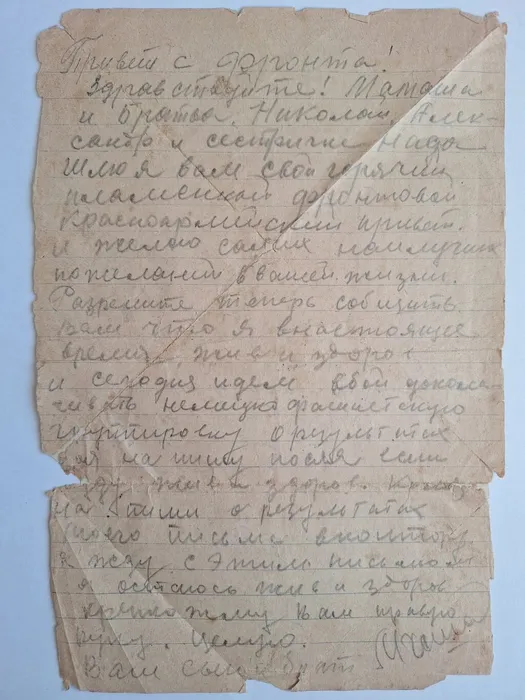 Привет с фронта!
Здравствуйте! Мамаша
и братья, Николай, Алек-
сандр и сестричка Надя
Шлю я вам свой горячий
пламенной фронтовой
Красноармейский привет.
и желаю самих наилучших
пожеланий в вашей жизни.
Разрешите теперь собщить
вам что я внастоящее
время жив и здоров
и сегодня идем вбой докола-
чивать немецко фашистскую
групировку о результатах
боя напишу посля если
буду жив и здоров.
напиши о результатах
моего письма
я жду. с этим письмом
я остаюсь жив и здоров
крепко жму вам правую
руку. Целую.
Ваш сын и брат